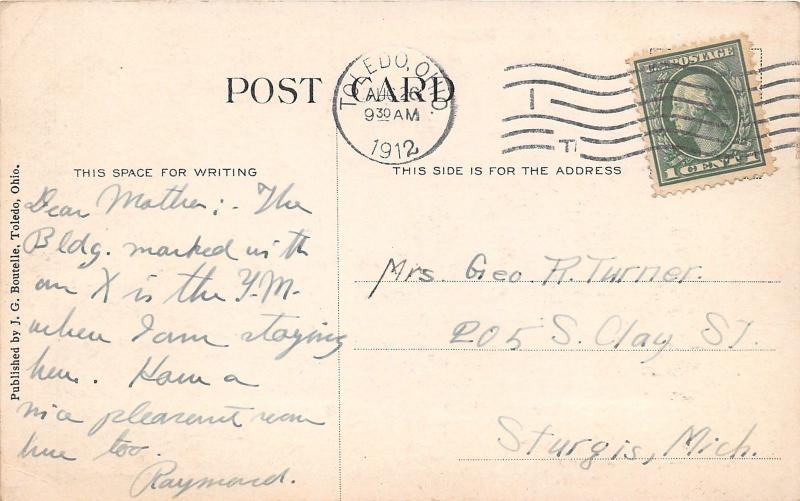 POST CARD
TOLEDO, OHIO.
AUG 26
9 30 AM
1912
U.S. POSTAGE
1 CENT 1
THIS SPACE FOR WRITING
THIS SIDE IS FOR THE ADDRESS
Published by J. G. Boutelle, Toledo, Ohio.
Dear Mother:- The
Bldg. marked with
an X is the Y.M.
where I am staying
here. Have a
nice pleasant room
here too.
Raymond.
Mrs. Geo. R. Turner.
205 S. Clay St.
Sturgis, Mich.